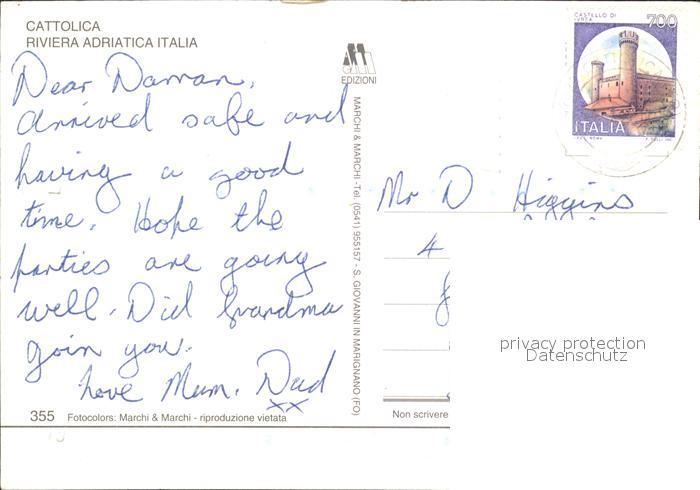 CATTOLICA
RIVIERA ADRIATICA ITALIA
Dear Daman,
arrived safe and
having a good
time. Hope the
parties are going
well. Did Grandma
goin you.
Love Mum. Dad
xx
355 Fotocolors: Marchi & Marchi - riproduzione vietata
EDIZIONI
MARCHI & MARCHI - Tel. (0541) 955157 - S. GIOVANNI IN MARIGNANO (FO)
CASTELLO DI
IVREA
700
ITALIA
Mr D Higgins
4
Non scrivere
privacy protection
Datenschutz